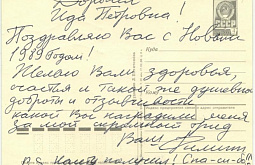 Дорогая
Ида Петровна!
Поздравляю Вас с Новым
1989 годом!
Желаю Вам здоровья,
счастья и такой же душевной
доброты и отзывчивости
какой Вы наградили меня
за мой скромный труд
Ваш
P.S.
Куда